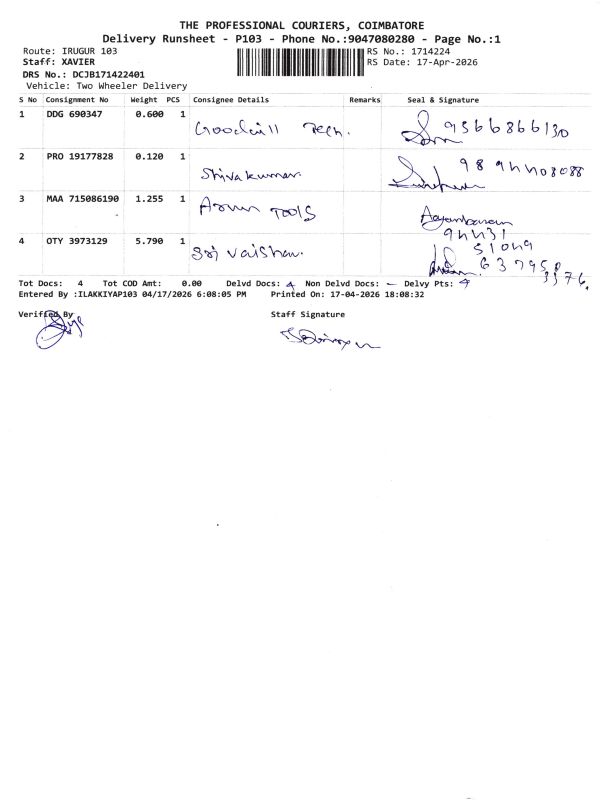 THE PROFESSIONAL COURIERS, COIMBATORE
Delivery Runsheet - P103 - Phone No.:9047080280 - Page No.:1
Route: IRUGUR 103
RS No.: 1714224
Staff: XAVIER
RS Date: 17-Apr-2026
DRS No.: DCJB171422401
Vehicle: Two Wheeler Delivery
S No Consignment No Weight PCS Consignee Details Remarks Seal & Signature
1 DDG 690347 0.600 1 Goodwill Tech. 9566866130
2 PRO 19177828 0.120 1 Shivakumar.
3 MAA 715086190 1.255 1 Arun TOOLS
4 OTY 3973129 5.790 1 Sri Vaishnav.
Tot Docs: 4 Tot COD Amt: 0.00 Delvd Docs: 4 Non Delvd Docs: - Delvy Pts: 4
Entered By :ILAKKIYAP103 04/17/2026 6:08:05 PM Printed On: 17-04-2026 18:08:32
Verified By
Staff Signature